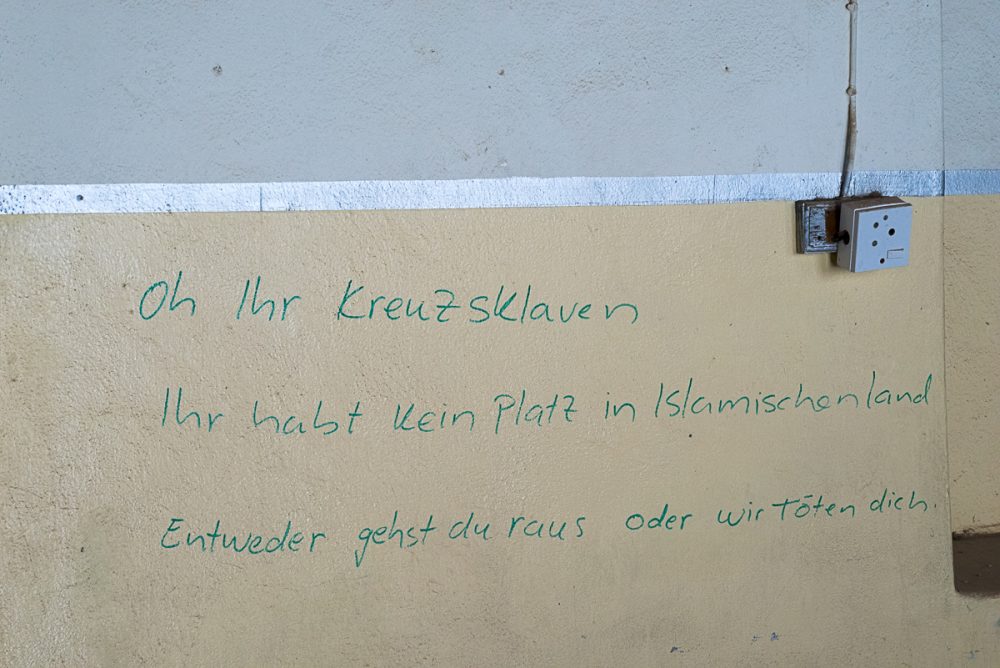 Oh Ihr Kreuzsklaven
Ihr habt Kein Platz in Islamischenland
Entweder gehst du raus oder wir Töten dich.